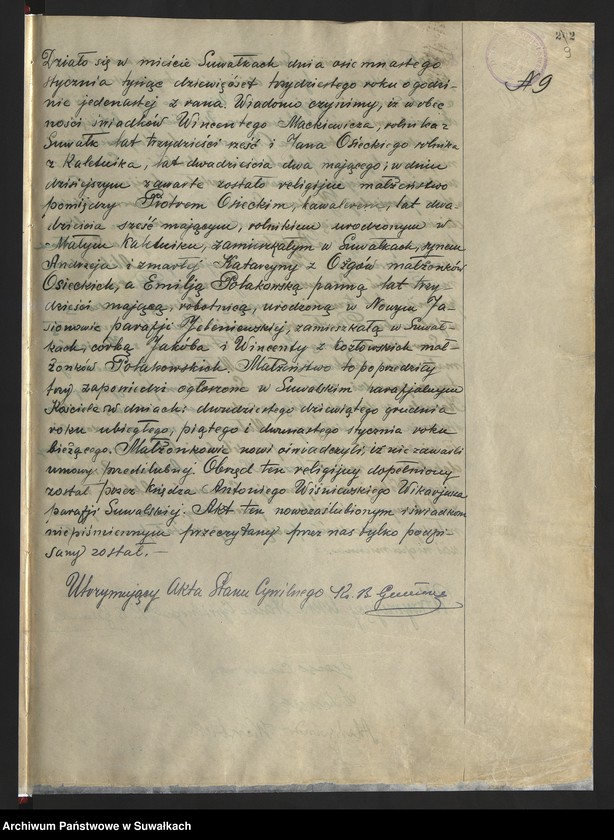 2 2
9
№ 9
Działo się w mieście Suwałkach dnia osiemnastego
stycznia tysiąc dziewięćset trzydziestego roku o godzi-
nie jedenastej z rana. Wiadomo czynimy, iż w obec
ności świadków Wincentego Mackiewicza, rolnika z
Suwałk lat trzydzieści sześć i Jana Osieckiego rolnika
z Kaletnika, lat dwadzieścia dwa mającego; w dniu
dzisiejszym zawarte zostało religijne małżeństwo
pomiędzy Piotrem Osieckim, kawalerem, lat dwa-
dzieścia sześć mającym, rolnikiem urodzonym w
Małym Kaletniku, zamieszkałym w Suwałkach, synem
Andrzeja i zmarłej Katarzyny z Ożgów małżonków
Osieckich, a Emilją Polakowską panną lat trzy-
dzieści mającą, robotnicą, urodzoną w Nowym Ja-
sionowie parafji Jeleniewskiej, zamieszkałą w Suwał-
kach, córką Jakóba i Wincenty z Kozłowskich mał-
żonków Polakowskich. Małżeństwo to poprzedziły
trzy zapowiedzi ogłoszone w Suwalskim parafjalnym
Kościele w dniach: dwudziestego dziewiątego grudnia
roku ubiegłego, piątego i dwunastego stycznia roku
bieżącego. Małżonkowie nowi oświadczyli, iż nie zawarli
umowy przedślubnej. Obrzęd ten religijny dopełniony
został przez księdza Antoniego Wiśniewskiego Wikarjusza
parafji Suwalskiej. Akt ten nowozaślubionym i świadkom
niepiśmiennym przeczytany przez nas tylko podpi-
sany został.—
Utrzymujący Akta Stanu Cywilnego Ks. B.
Archiwum Państwowe w Suwałkach